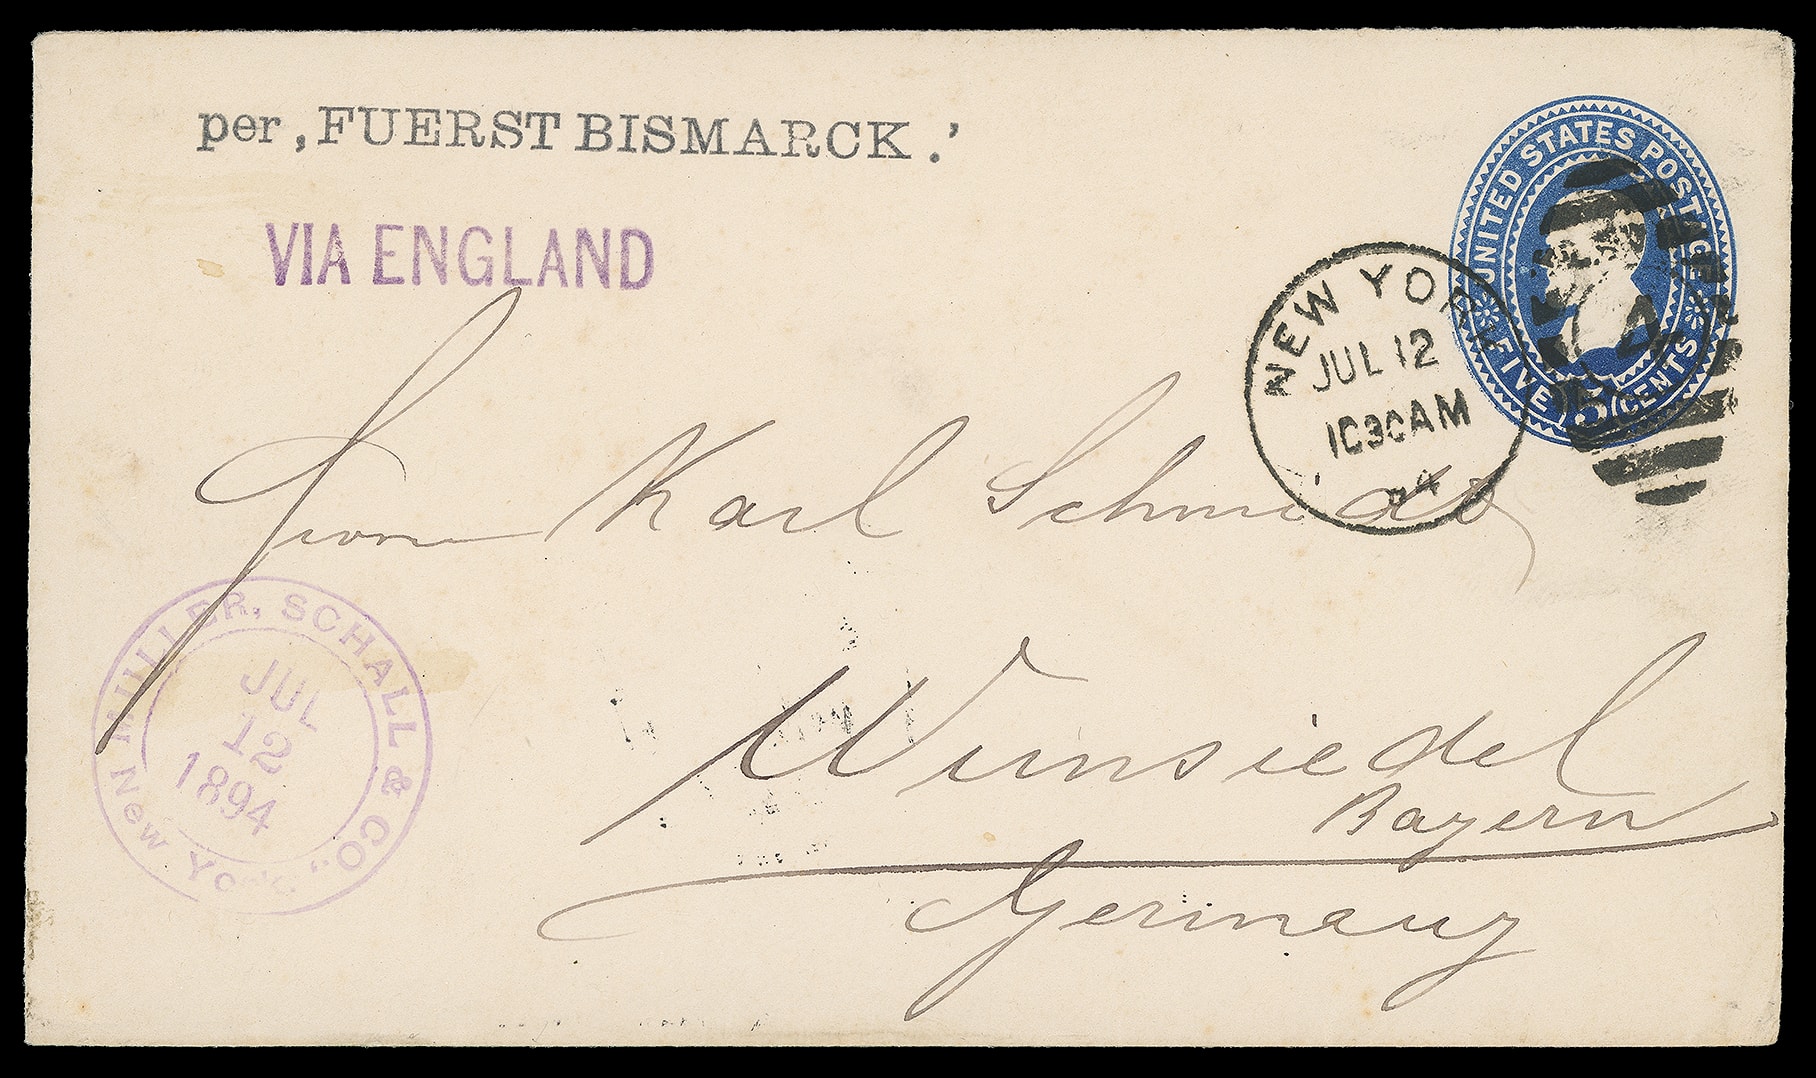 per ‚FUERST BISMARCK.’
VIA ENGLAND
UNITED STATES POSTAGE
FIVE 5 CENTS
NEW YORK
JUL 12
1030AM
94
Karl Schmidt
MULLER, SCHALL & CO.,
JUL
12
1894
New York
Wunsiedel
Bayern
Germany